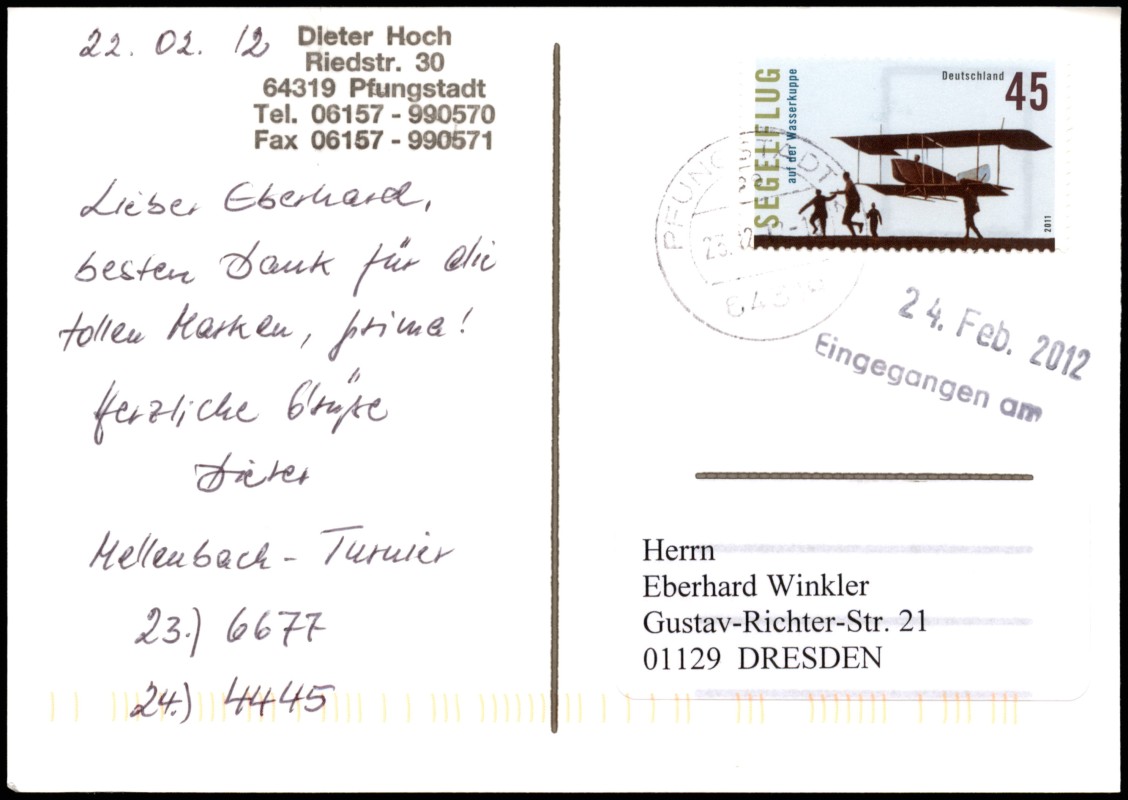 22. 02. 12
Dieter Hoch
Riedstr. 30
64319 Pfungstadt
Tel. 06157 - 990570
Fax 06157 - 990571
Lieber Eberhard,
besten Dank für die
tollen Marken, prima!
Herzliche Grüße
Dieter
Mellenbach - Turnier
23.) 6677
24.) 4445
SEGELFLUG
auf der Wasserkuppe
Deutschland 45
2011
24. Feb. 2012
Eingegangen am
Herrn
Eberhard Winkler
Gustav-Richter-Str. 21
01129 DRESDEN